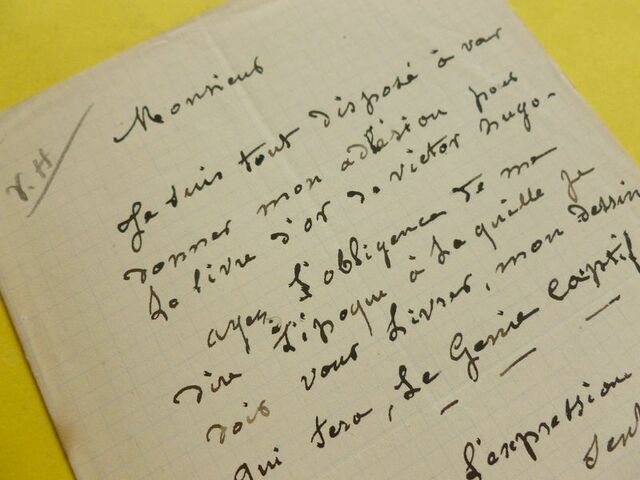 V. H
Monsieur
Je suis tout disposé à vous
donner mon adhésion pour
Le livre d'or de victor hugo.
ayez l'obligence de me
dire L'époque à Laquelle Je
dois vous Livrer, mon dessin
qui sera, Le Genie Captif
L'expression